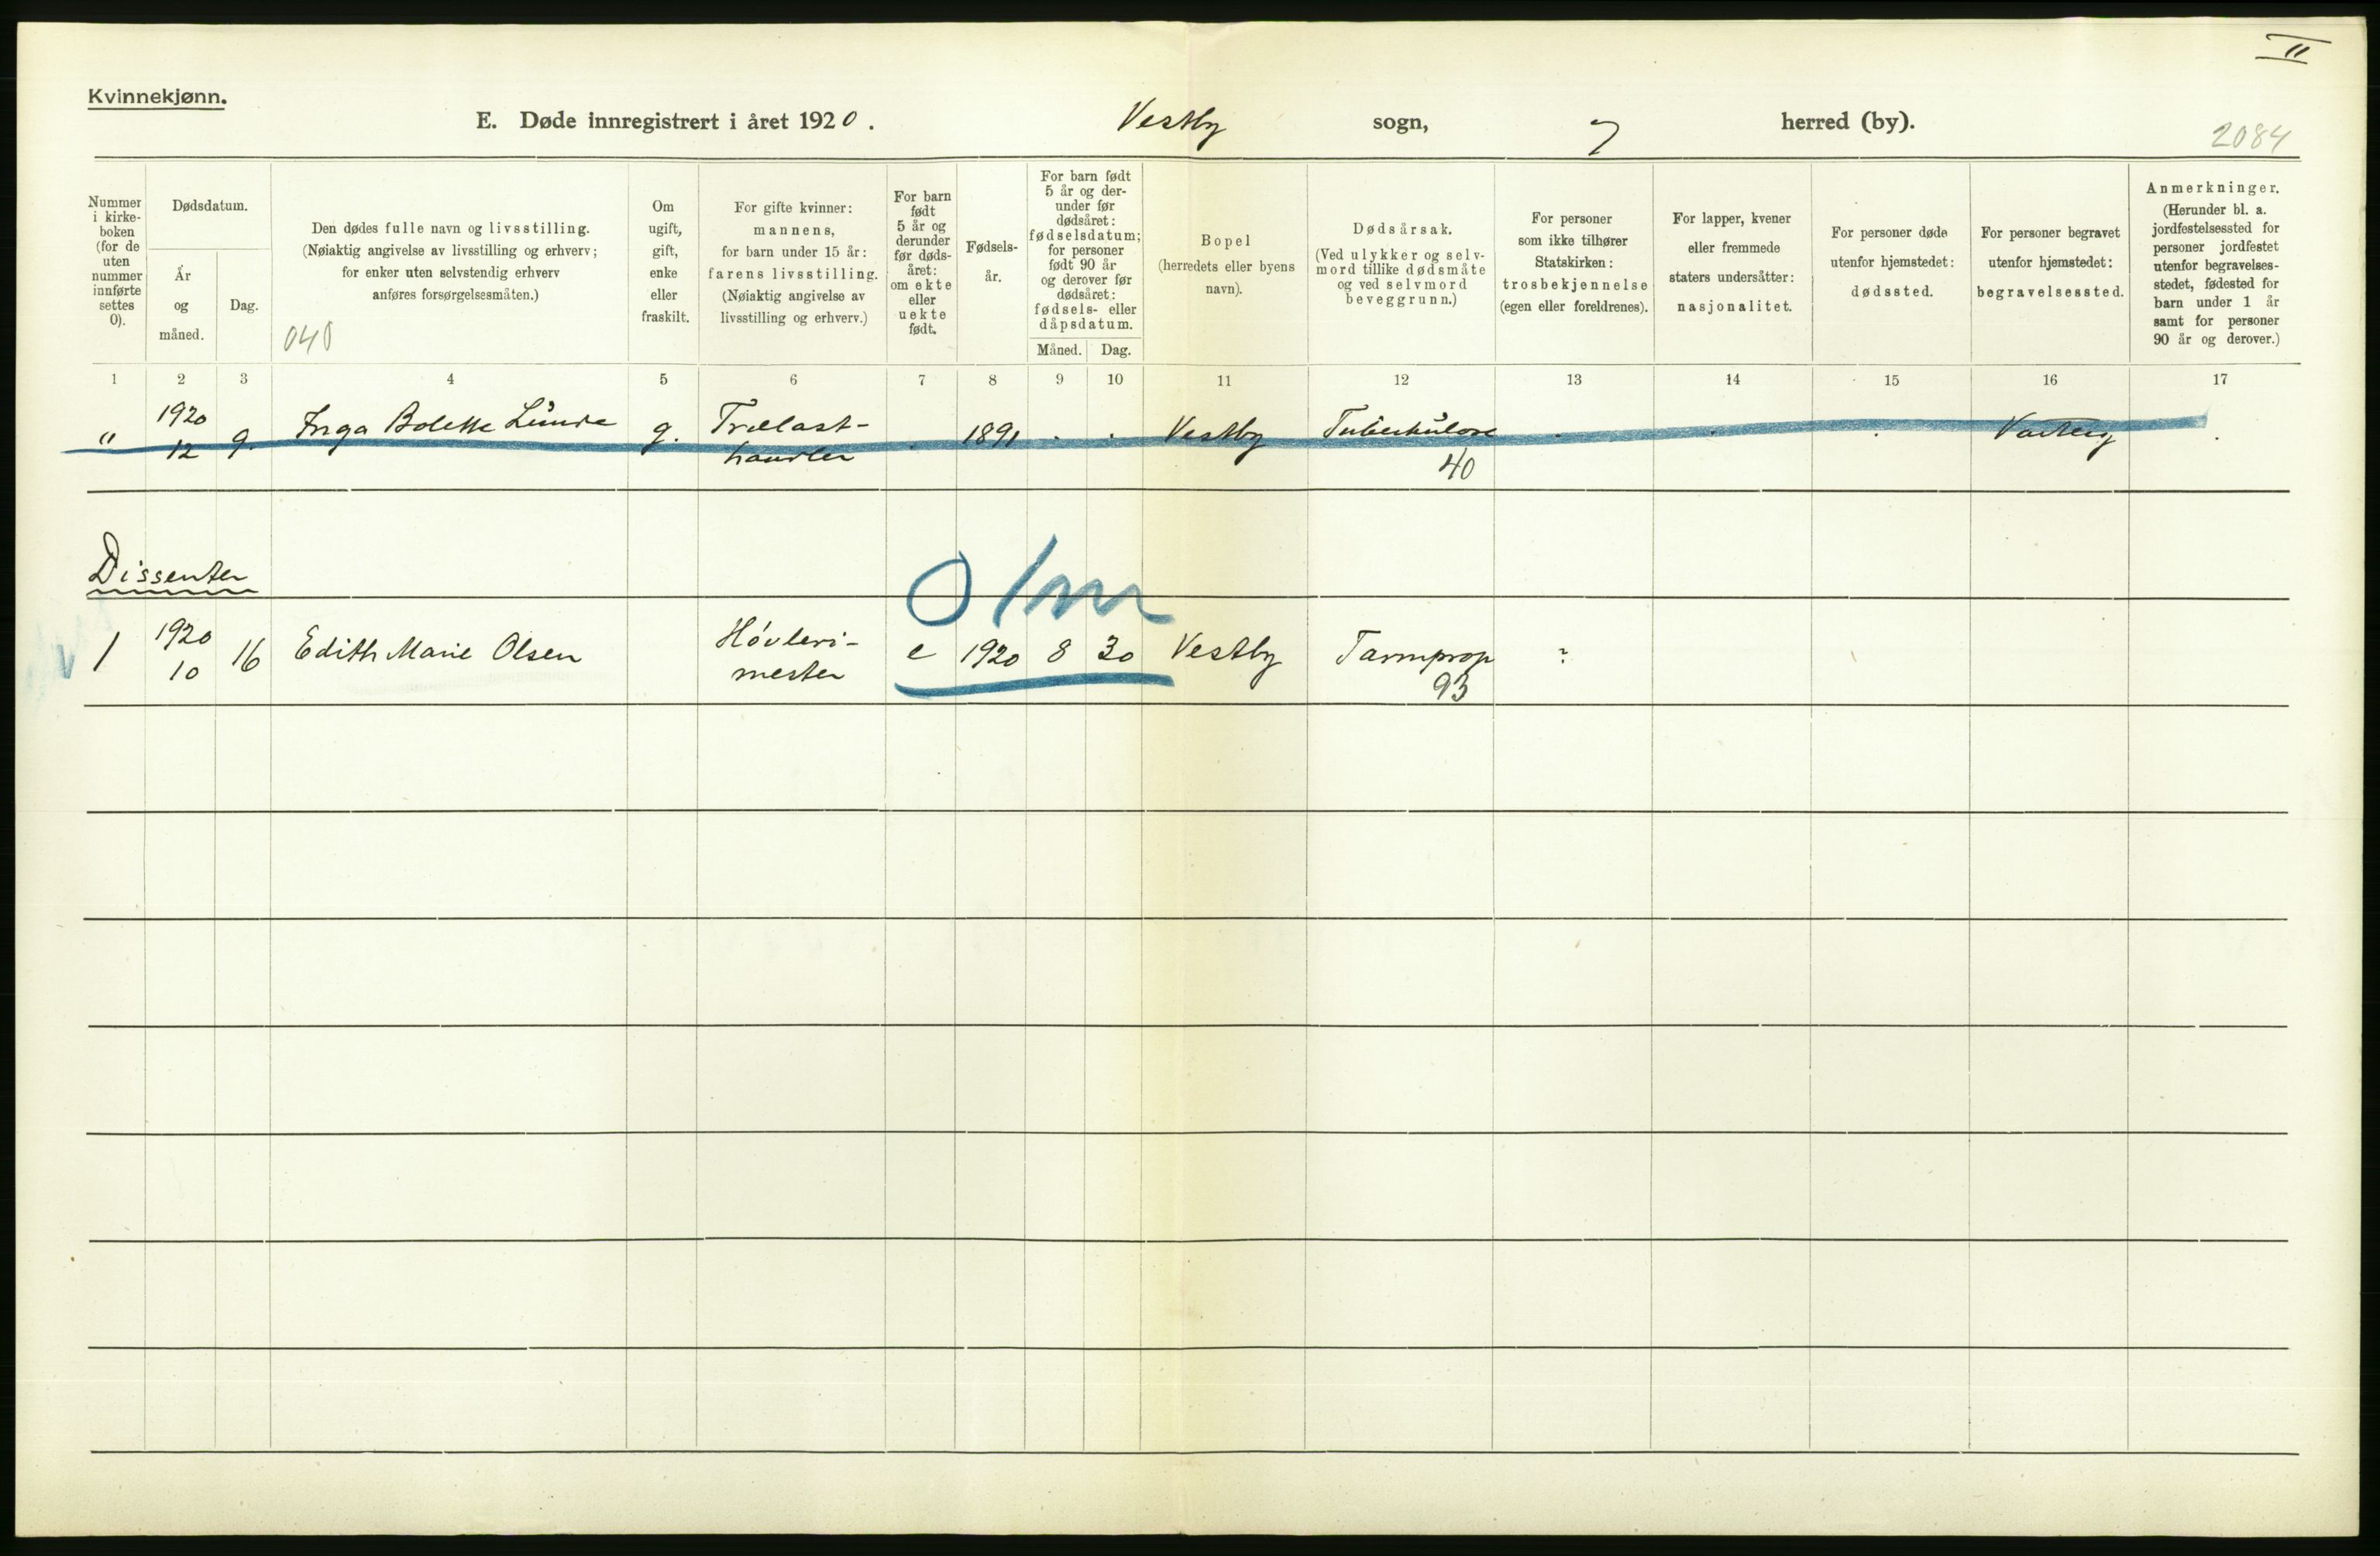 II
Kvinnekjønn.
E. Døde innregistrert i året 1920. Vestby sogn, herred (by).
2084
Nummer i kirke-boken (for de uten nummer innførte settes 0).
Dødsdatum.
År og måned.
Dag.
Den dødes fulle navn og livsstilling.
(Nøiaktig angivelse av livsstilling og erhverv;
for enker uten selvstendig erhverv
anføres forsørgelsesmåten.)
040
Om ugift, gift, enke eller fraskilt.
For gifte kvinner:
mannens,
for barn under 15 år:
farens livsstilling.
(Nøiaktig angivelse av
livsstilling og erhverv.)
For barn født 5 år og derunder før døds-året: om ekte eller uekte født.
Fødsels-år.
For barn født 5 år og der-under før dødsåret: fødselsdatum; for personer født 90 år og derover før dødsåret: fødsels- eller dåpsdatum.
Måned. Dag.
Bopel
(herredets eller byens
navn).
Dødsårsak.
(Ved ulykker og selv-
mord tillike dødsmåte
og ved selvmord
beveggrunn.)
For personer
som ikke tilhører
Statskirken:
trosbekjennelse
(egen eller foreldrenes).
For lapper, kvener
eller fremmede
staters undersåtter:
nasjonalitet.
For personer døde
utenfor hjemstedet:
dødssted.
For personer begravet
utenfor hjemstedet:
begravelsessted.
Anmerkninger.
(Herunder bl. a.
jordfestelsessted for
personer jordfestet
utenfor begravelses-
stedet, fødested for
barn under 1 år
samt for personer
90 år og derover.)
1 2 3 4 5 6 7 8 9 10 11 12 13 14 15 16 17
" 1920 12 9. Inga Bolette Lunde g. Trælast-handler 1891 Vestby Tuberkulose
40
Dissenter
0 1mn
1 1920 10 16 Edith Marie Olsen Høvleri-mester e 1920 8 30 Vestby Tarmprop ?
93